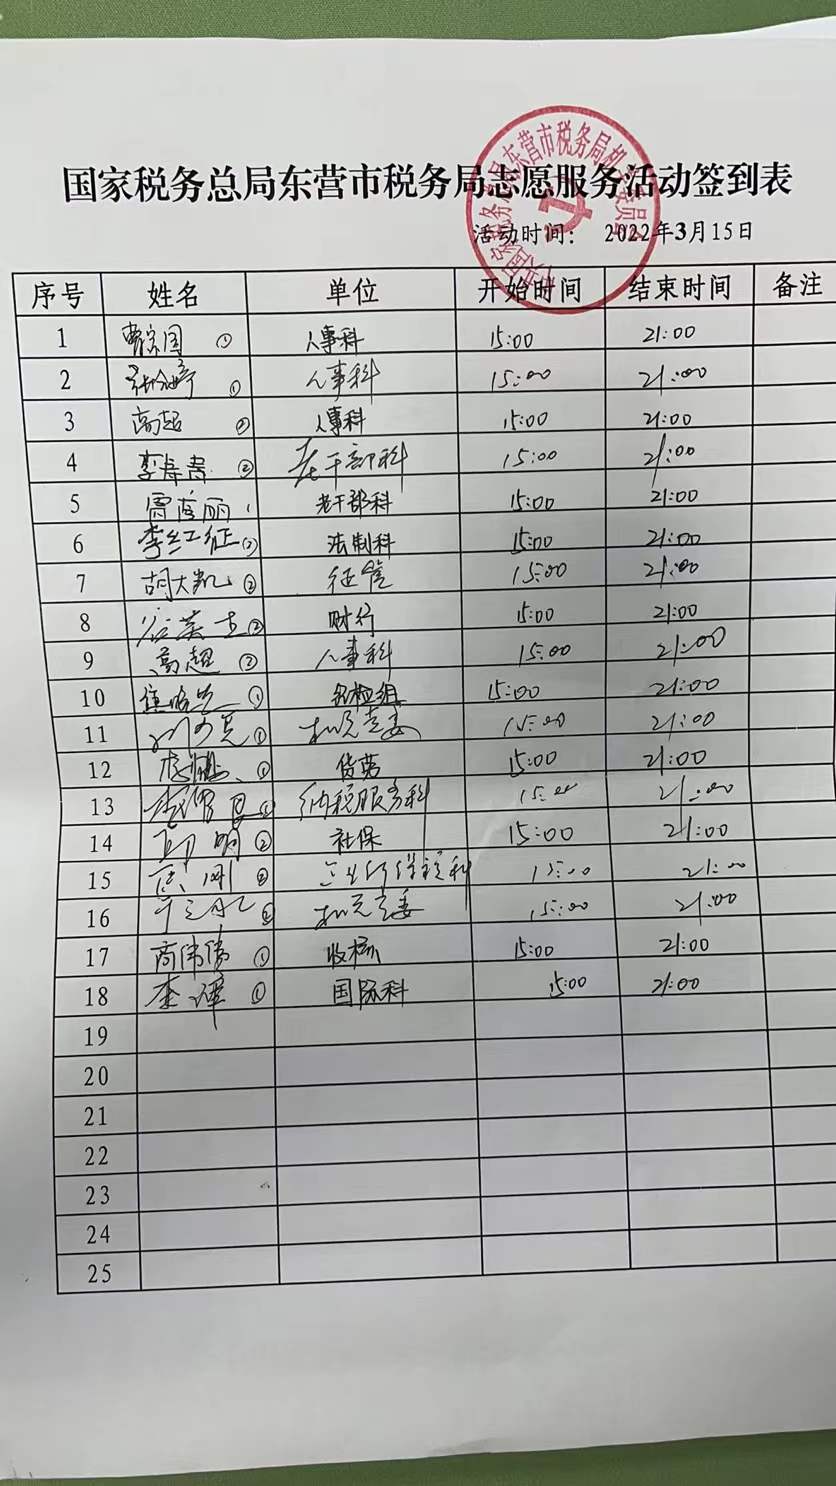 国家税务总局东营市税务局志愿服务活动签到表
活动时间: 2022年3月15日
序号 姓名 单位 开始时间 结束时间 备注
1 曹宗国 ① 人事科 15:00 21:00
2 ① 人事科 15:00 21:00
3 高超 ② 人事科 15:00 21:00
4 ② 老干部科 15:00 21:00
5 老干部科 15:00 21:00
6 李红征 ② 法制科 15:00 21:00
7 胡大凯 ② 征管 15:00 21:00
8 谷英杰 ② 财行 15:00 21:00
9 高超 ② 人事科 15:00 21:00
10 ① 纪检组 15:00 21:00
11 ① 机关党委 15:00 21:00
12 ① 货劳 15:00 21:00
13 纳税服务科 15:00 21:00
14 ② 社保 15:00 21:00
15 ② 15:00 21:00
16 机关党委 15:00 21:00
17 商伟伟 ① 收核 15:00 21:00
18 李谭 ① 国际科 15:00 21:00
19
20
21
22
23
24
25